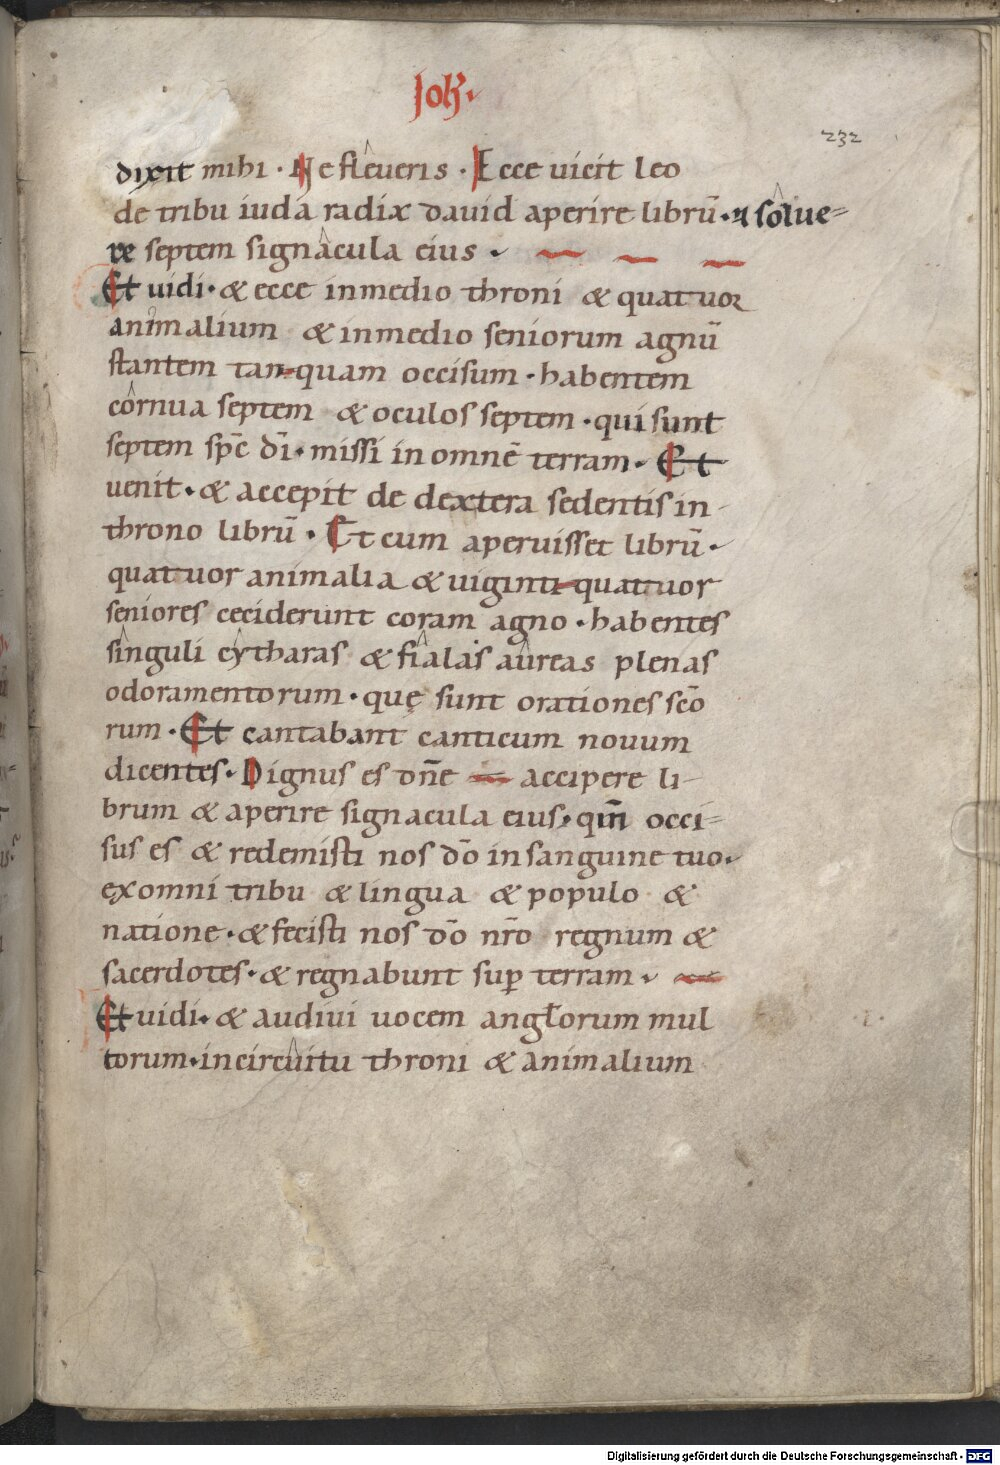 Joh.
232
dixit mihi · Ne fleueris · Ecce uicit leo
de tribu iuda radix dauid aperire librū · & solue=
re septem signacula eius ·
Et uidi · & ecce inmedio throni & quatuor
animalium & inmedio seniorum agnū
stantem tan-quam occisum · habentem
cornua septem & oculos septem · qui sunt
septem spc̄ dī · missi in omnē terram · Et
uenit · & accepit de dextera sedentis in
throno librū · Et cum aperuisset librū ·
quatuor animalia & uiginti-quattuor
seniores ceciderunt coram agno · habentes
singuli cytharas & fialas aureas plenas
odoramentorum · quę sunt orationes scō
rum · Et cantabant canticum nouum
dicentes · Dignus es dn̄e accipere li-
brum & aperire signacula eius · qm̄ occi=
sus es & redemisti nos dō in sanguine tuo ·
ex omni tribu & lingua & populo &
natione · & fecisti nos dō nr̄o regnum &
sacerdotes · & regnabunt suꝑ terram ·
Et uidi · & audiui uocem angł̄orum mul
torum · in circuitu throni & animalium
Digitalisierung gefördert durch die Deutsche Forschungsgemeinschaft - DFG